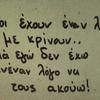 οι έχουν έναν λ
με κρίνουν..
ιά εγώ δεν έχω
νέναν λόγο να
τους ακούω!